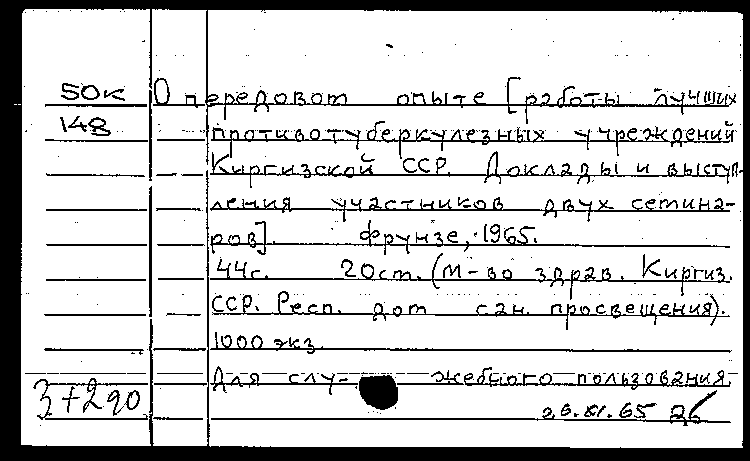 50к О передовом опыте [работы лучших
148 противотуберкулезных учреждений
Киргизской ССР. Доклады и выступ-
ления участников двух семина-
ров]. Фрунзе, 1965.
44с. 20см. (М-во здрав. Киргиз.
ССР. Респ. дом сан. просвещения).
1000 экз.
Для слу- жебного пользования
3+290